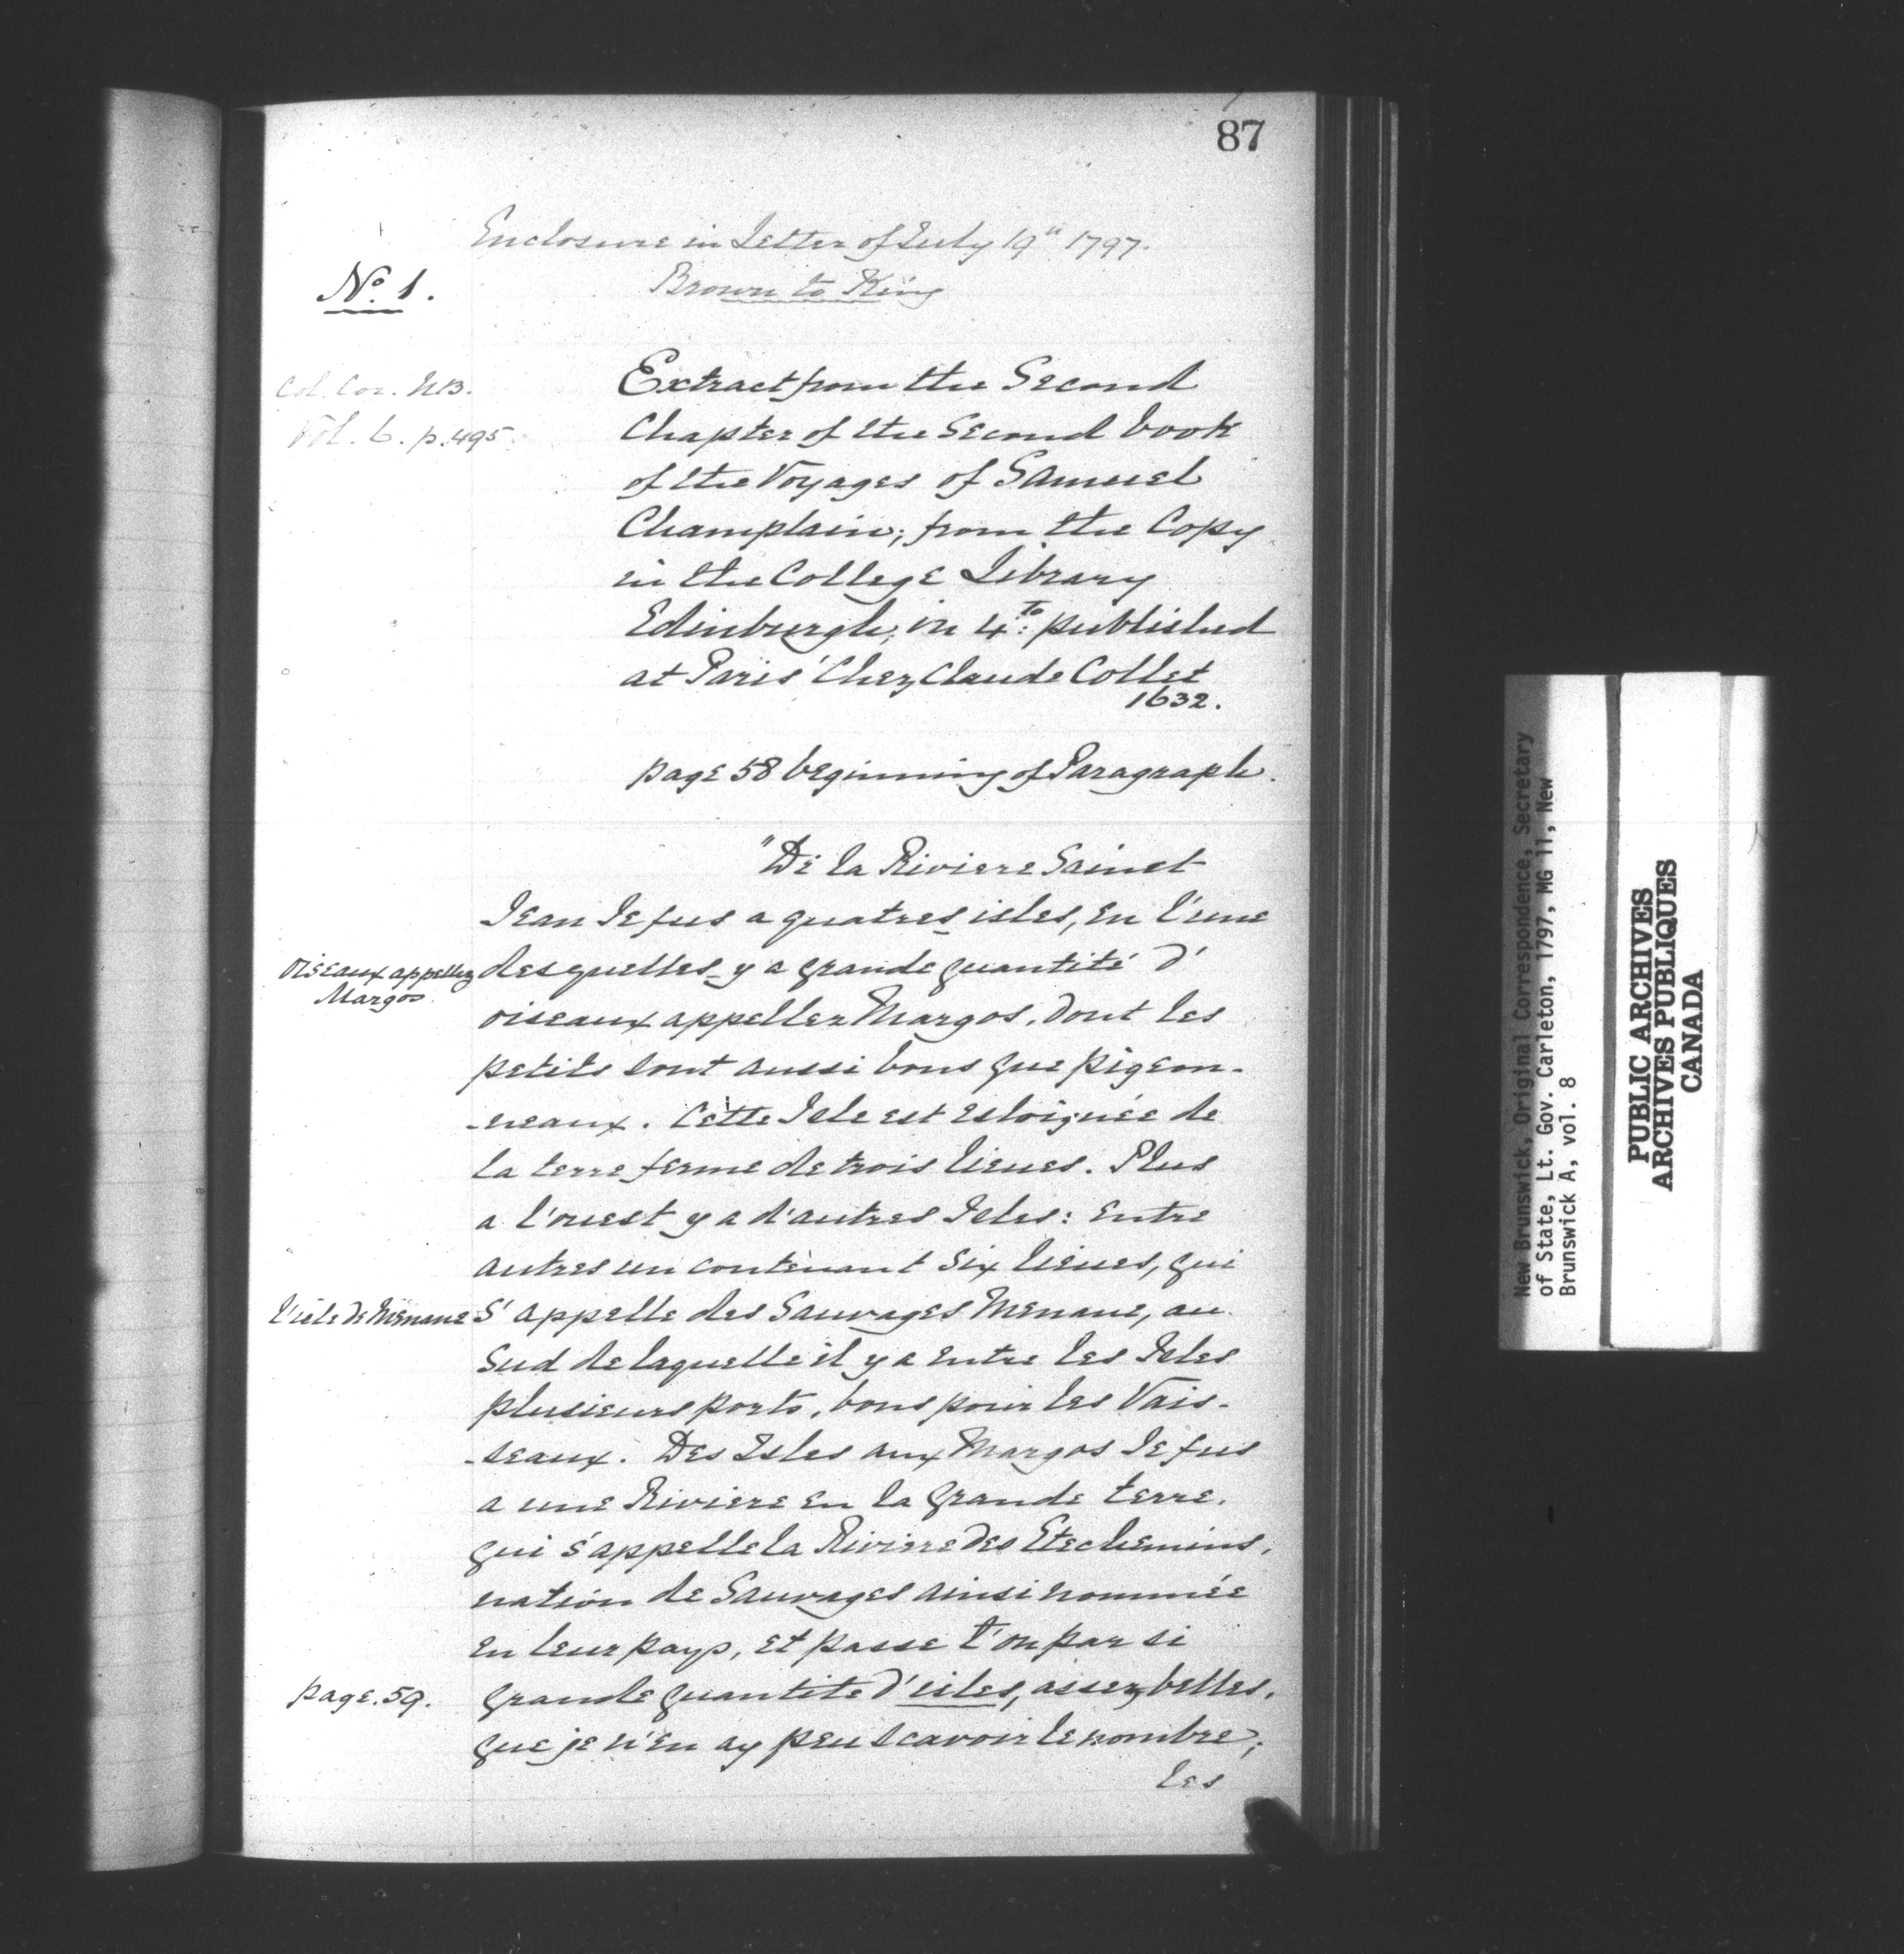 87
Enclosure in Letter of July 19th 1797.
Brown to King
No. 1.
Col. Cor. N.B.
Vol. 6. p. 495.
Extract from the Second
Chapter of the Second book
of the Voyages of Samuel
Champlain; from the Copy
in the College Library
Edinburgh; in 4to: published
at Paris 'Chez Claude Collet
1632.
page 58 beginning of Paragraph.
"De la Riviere Sainct
Jean Je fus a quatres isles, en l'une
oiseaux appellez
Margos
desquelles y a grande quantité d'
oiseaux appellez Margos, dont les
petits sont aussi bons que pigeon-
-neaux. Cette Isle est esloignée de
la terre ferme de trois lieues. Plus
a l'ouest y a d'autres Isles: entre
autres un contenant six lieues, qui
l'isle de Menane
s'appelle des Sauvages Menane, au
Sud de laquelle il y a entre les Isles
plusieurs ports, bons pour les Vais-
-seaux. Des Isles aux Margos Je fus
a une Riviere en la grande terre,
qui s'appelle la Riviere des Etechemins,
nation de Sauvages ainsi nommée
en leur pays, et passe t'on par si
page. 59.
grande quantite d'isles, assez belles,
que je n'en ay peu scavoir le nombre;
les
New Brunswick, Original Correspondence, Secretary
of State, Lt. Gov. Carleton, 1797, MG 11, New
Brunswick A, vol. 8
PUBLIC ARCHIVES
ARCHIVES PUBLIQUES
CANADA